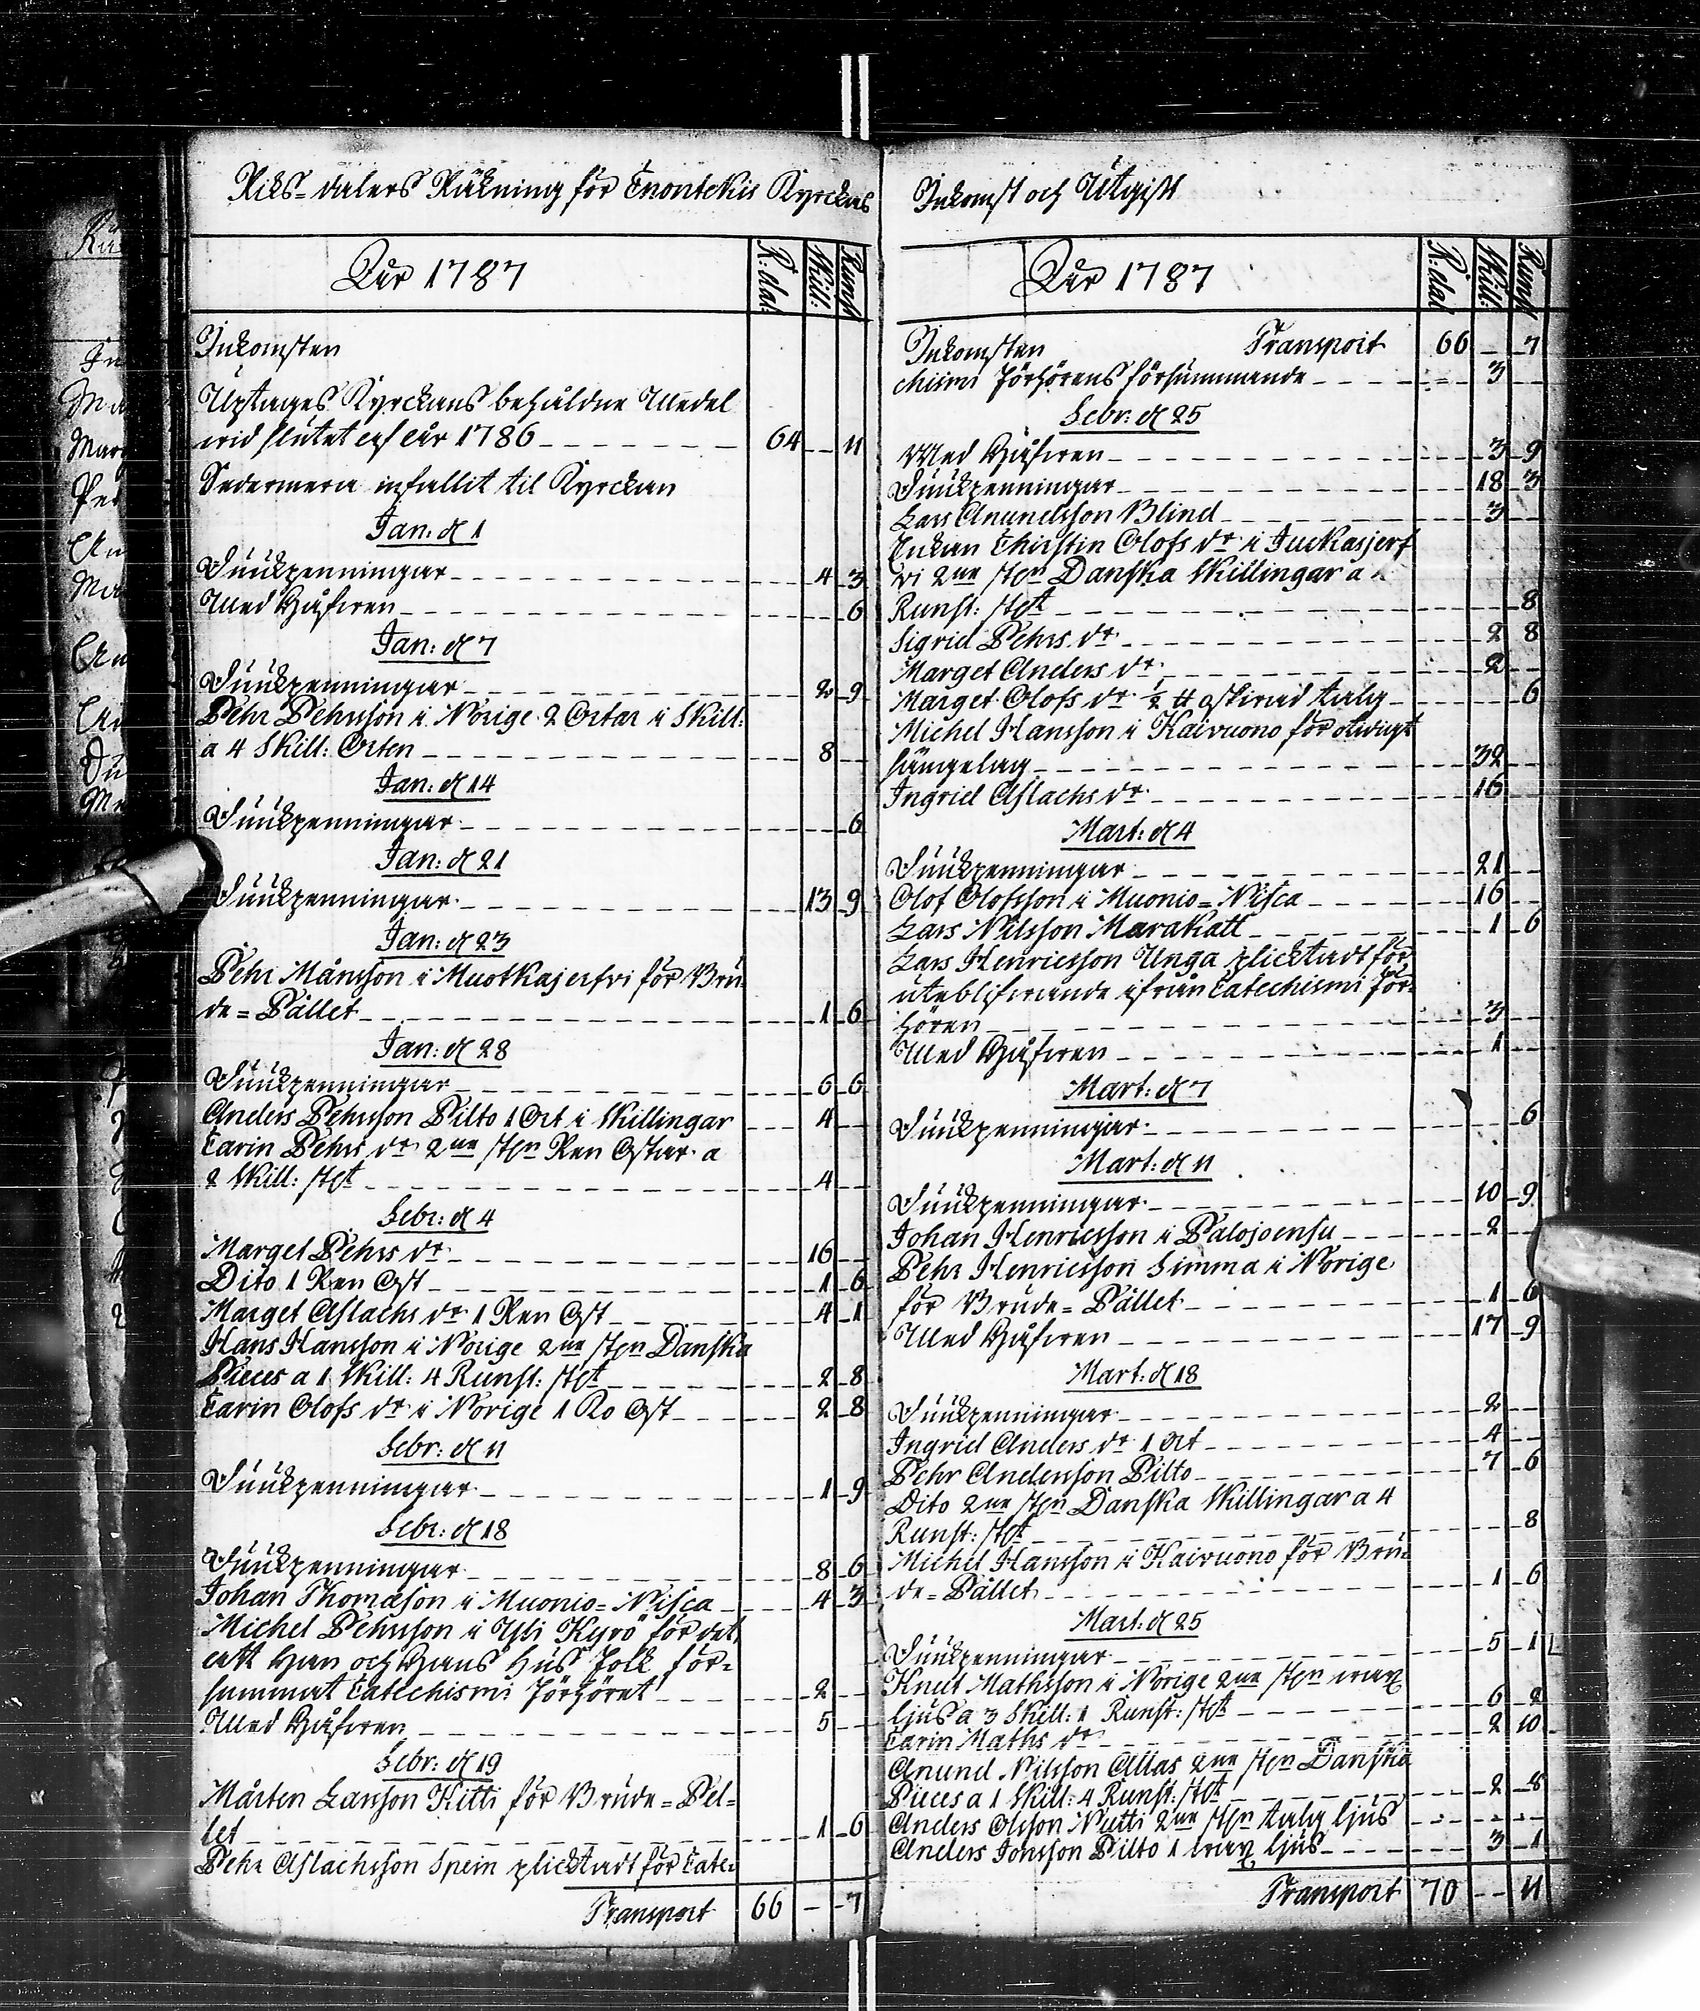 Riks-dalers Räkning för Enontekis Kyrckas
Åhr 1787
R:dal: Skill: Runst
Inkomsten
Uptages Kyrckans behåldne Medel
wid slutet af år 1786 64 -- 11
Sedermera infallit til Kyrckan
Jan: d 1
Siukpenningar 4 3
Med Håfwen 6
Jan: d 7
Siukpenningar 2 9
Pehr Pehrsson i Norige 2 Ortar i Skill:
a 4 Skill: Orten 8
Jan: d 14
Siukpenningar 6
Jan: d 21
Siukpenningar 13 9
Jan: d 23
Pehr Månsson i Muotkajerfvi för Bru
de=Pället 1 6
Jan: d 28
Siukpenningar 6 6
Anders Pehrsson Pilto 1 Ort i Skillingar 4
Carin Pehrs dr 2ne st:n Ren Ostar a
2 Skill: st:t 4
Febr: d 4
Marget Pehrs dr 16
Dito 1 Ren Ost 1 6
Marget Aslachs dr 1 Ren Ost 4 1
Hans Hansson i Norige 2ne st:n Danska
Pieces a 1 Skill: 4 Runst: st:t 2 8
Carin Olofs dr i Norige 1 Ko Ost 2 8
Febr: d 11
Siukpenningar 1 9
Febr: d 18
Siukpenningar 8 6
Johan Thomæson i Muonio=Nisca 4 3
Michel Pehrsson i Yli Kyrö för det
att Han och Hans Hus Folk för=
summat Catechismi Förhöret 2
Med Håfwen 5
Febr: d 19
Mårten Larsson Kitti för Brude=Pel=
let 1 6
Pehr Aslachsson Spein plicktadt för Cate=
Transport 66 -- 7
Inkomst och Utgift
Åhr 1787
R:dal Skill: Runst
Inkomsten Transport 66 -- 7
chismi Förhörens försummande 3
Febr: d 25
Med Håfwen 3 9
Siukpenningar 18 3
Lars Anundsson Blind 3
Enkan Chirstin Olofs dr i Juckasjerf
vi 2ne st:n Danska Skillingar a 4
Runst: st:t 8
Sigrid Pehrs dr 2 8
Marget Anders dr 2
Marget Olofs dr ½ ℔ oskirad talg 6
Michel Hansson i Kaivuono för olwigt
sängelag 32
Ingrid Aslachs dr 16
Mart: d 4
Siukpenningar 21
Olof Olofsson i Muonio=Nisca 16
Lars Nilsson Marakatt 1 6
Lars Henricsson Unga plicktadt för
uteblifwande ifrån Catechismi för=
hören 3
Med Håfwen 1
Mart: d 7
Siukpenningar 6
Mart: d 11
Siukpenningar 10 9
Johan Henricsson i Palojoensu 2
Pehr Henricsson Simma i Norige
för Brude=Pället 1 6
Med Håfwen 17 9
Mart: d 18
Siukpenningar 2
Ingrid Anders dr 1 Ort 4
Pehr Andersson Pilto 7 6
Dito 2ne st:n Danska Skillingar a 4
Runst: st:t 8
Michel Hansson i Kaivuono för Bru=
de=Pället 1 6
Mart: d 25
Siukpenningar 5 1
Knut Mathsson i Norige 2ne st:n wax
ljus a 3 Skill: 1 Runst: st:t 6 2
Carin Maths dr 2 10
Anund Nilsson Allas 2ne st:n Danska
Pieces a 1 Skill: 4 Runst: st:t 2 8
Anders Olsson Nutti 2ne st:n talg ljus
Anders Jonsson Pilto 1 wax ljus 3 1
Transport 70 -- 11